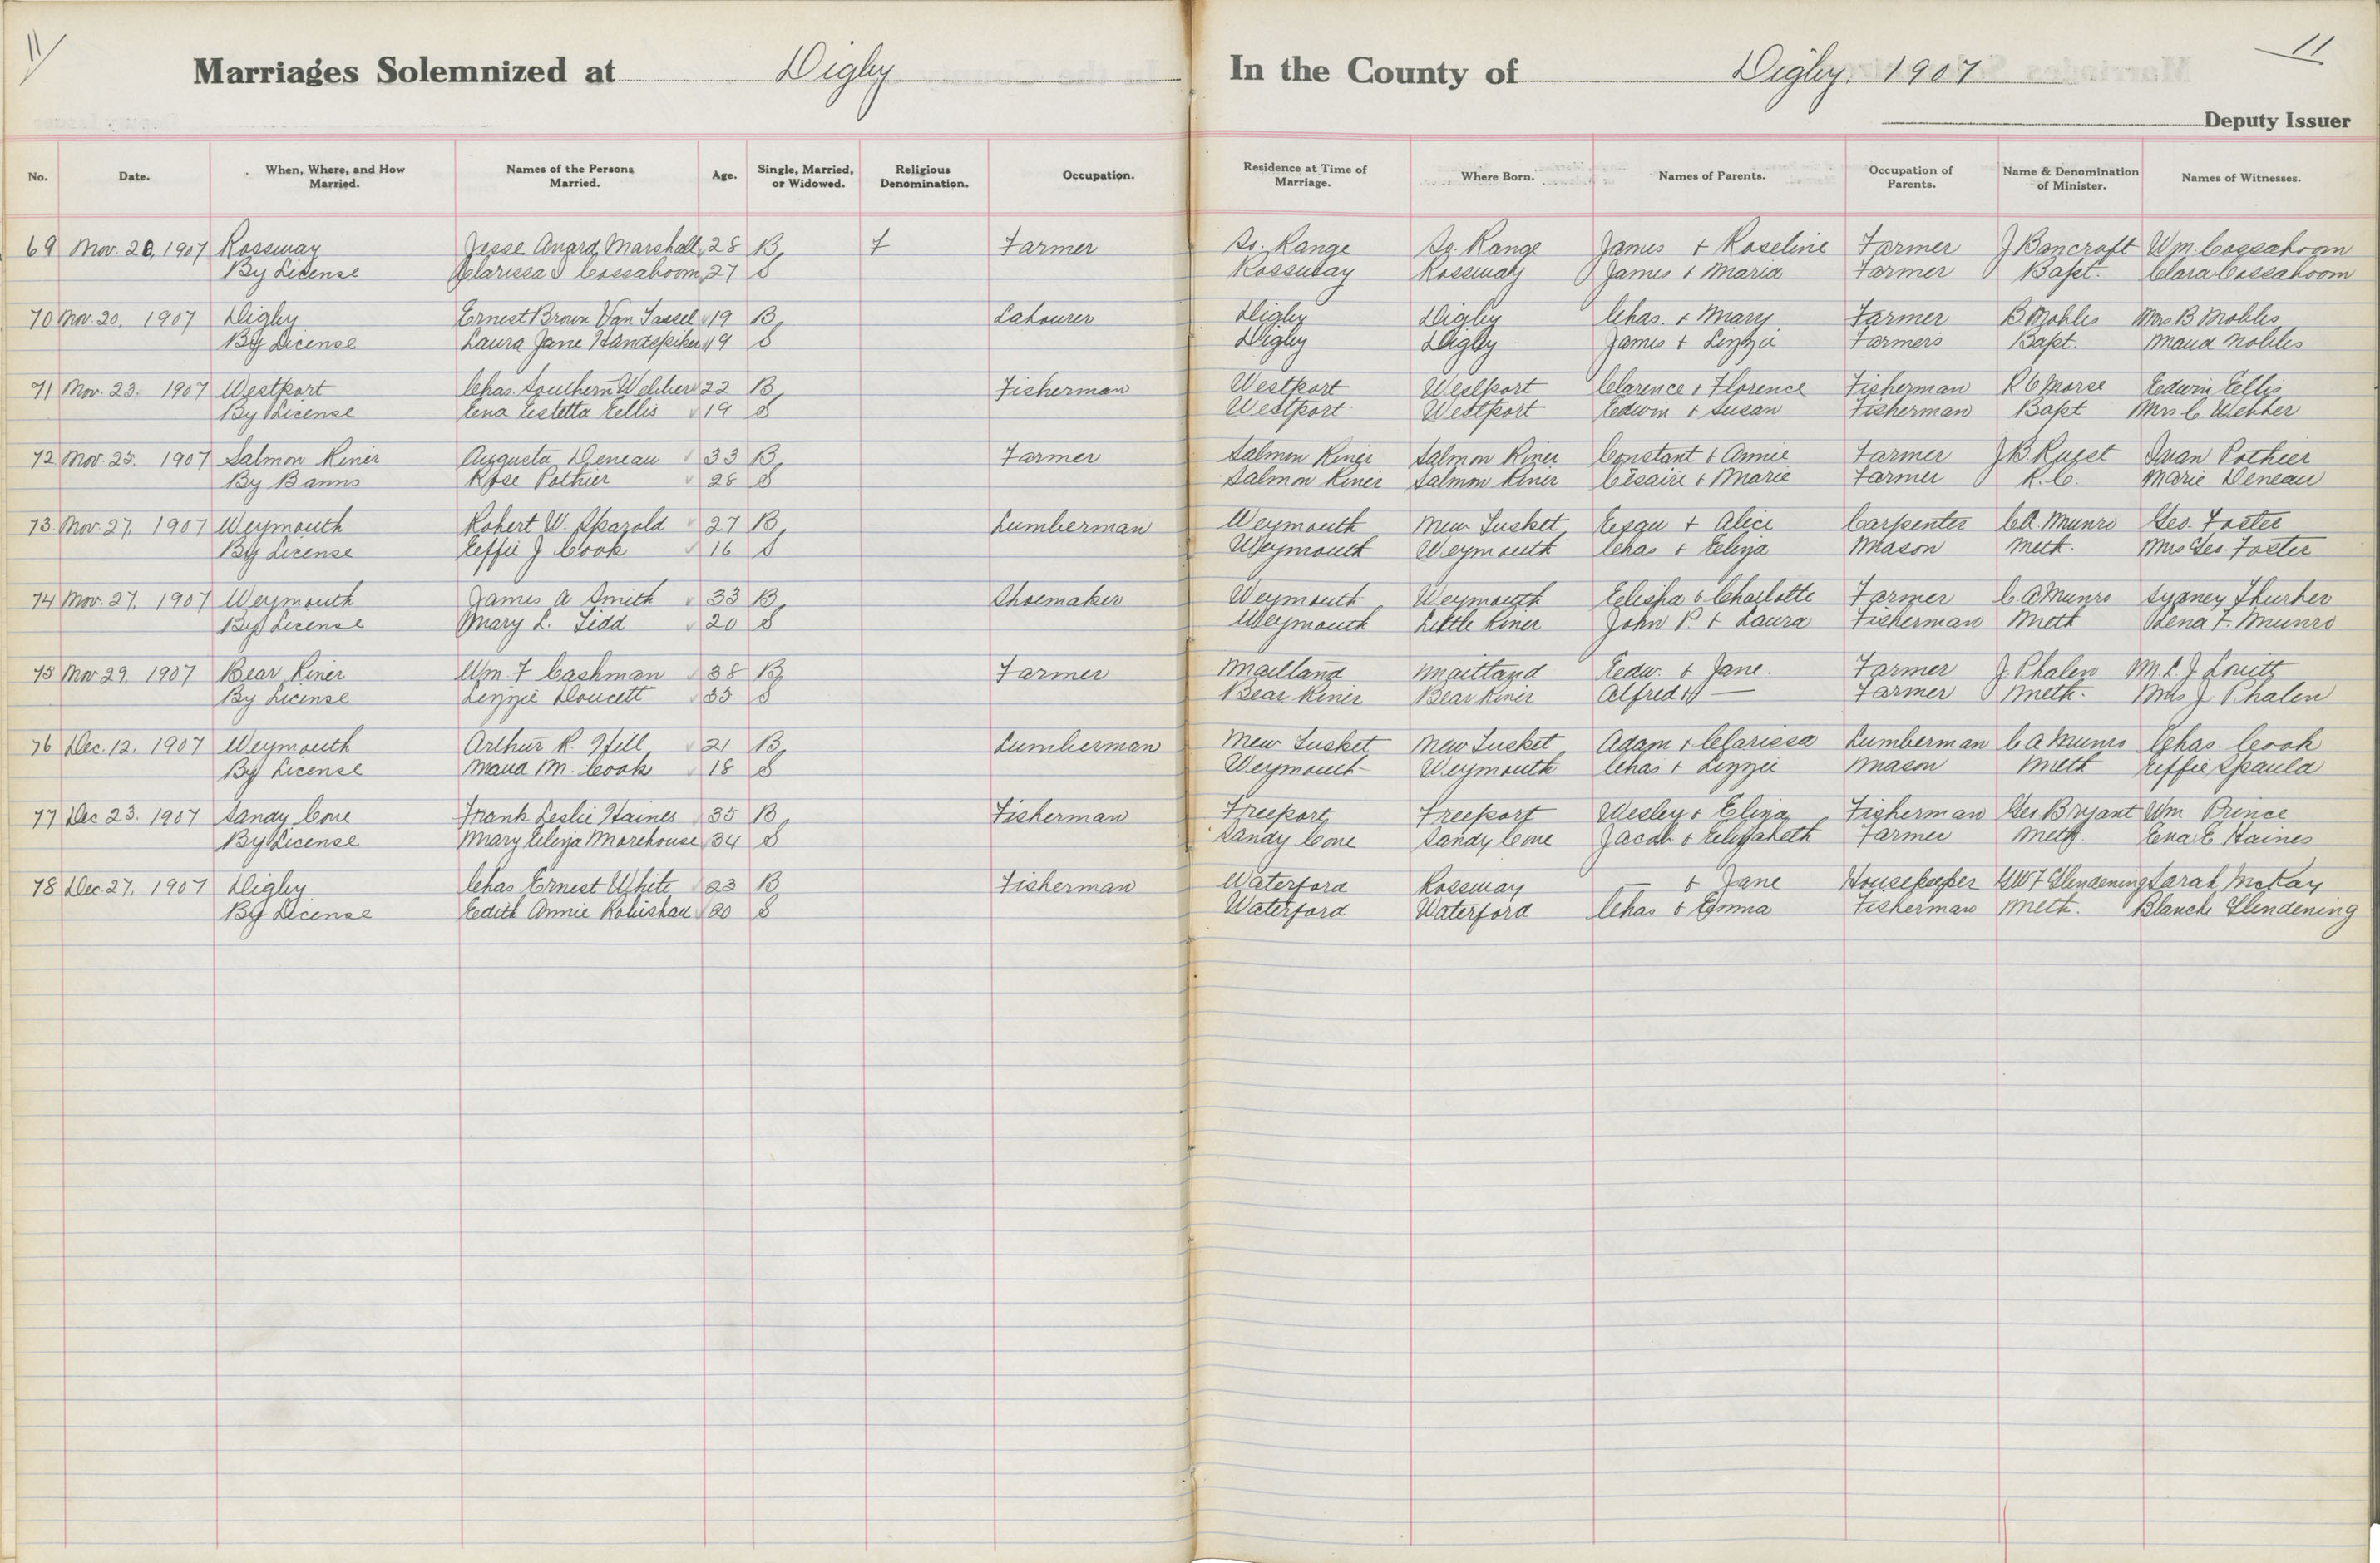 11 11
Marriages Solemnized at Digby In the County of Digby, 1907
Deputy Issuer
No. Date. When, Where, and How Married. Names of the Persons Married. Age. Single, Married, or Widowed. Religious Denomination. Occupation. Residence at Time of Marriage. Where Born. Names of Parents. Occupation of Parents. Name & Denomination of Minister. Names of Witnesses.
69 Nov. 20, 1907 Rossway Jesse Avard Marshall 28 B Farmer So. Range So. Range James + Roseline Farmer J Bancroft Wm. Cossaboom
By License Clarissa Cossaboom 27 S Rossway Rossway James + Maria Farmer Bapt. Clara Cossaboom
70 Nov. 20, 1907 Digby Ernest Brown Van Tassel 19 B Labourer Digby Digby Chas. + Mary Farmer B Nobles Mrs B Nobles
By License Laura Jane Handspiker 19 S Digby Digby James + Lizzie Farmers Bapt. Maud Nobles
71 Nov. 23. 1907 Westport Chas. Southern Webber 22 B Fisherman Westport Westport Clarence + Florence Fisherman R C Morse Edwin Ellis
By License Ena Estetta Ellis 19 S Westport Westport Edwin + Susan Fisherman Bapt Mrs C. Webber
72 Nov. 25. 1907 Salmon River Augusta Deneau 33 B Farmer Salmon River Salmon River Constant + Annie Farmer J B. Ruest Pothier
By Banns Rose Pothier 28 S Salmon River Salmon River Césaire + Marie Farmer R. C. Marie Deneau
73 Nov. 27, 1907 Weymouth Robert W. 27 B Lumberman Weymouth New Tusket + Alice Carpenter C A. Munro Geo. Foster
By License Effie J Cook 16 S Weymouth Weymouth Chas + Eliza Mason Meth. Mrs Geo. Foster
74 Nov. 27, 1907 Weymouth James A Smith 33 B Shoemaker Weymouth Weymouth Elisha & Charlotte Farmer C. A Munro Sydney Thurber
By License Mary L. Tidd 20 S Weymouth Little River John P. + Laura Fisherman Meth Lena F. Munro
75 Nov. 29. 1907 Bear River Wm. F Cashman 38 B Farmer Maitland Maitland Edw. & Jane. Farmer J Phalen M. L. J
By License Lizzie Doucett 35 S Bear River Bear River Alfred + — Farmer Meth. Mrs J Phalen
76 Dec. 12, 1907 Weymouth Arthur R. Hill 21 B Lumberman New Tusket New Tusket Adam + Clarissa Lumberman C A Munro Chas. Cook
By License Maud M. Cook 18 S Weymouth Weymouth Chas + Lizzie Mason Meth Effie
77 Dec 23. 1907 Sandy Cove Frank Leslie Haines 35 B Fisherman Freeport Freeport Wesley + Eliza Fisherman Geo Bryant Wm Prince
By License Mary Eliza Morehouse 34 S Sandy Cove Sandy Cove Jacob & Elizabeth Farmer Meth Ena E Haines
78 Dec. 27, 1907 Digby Chas Ernest White 23 B Fisherman Waterford Rossway — & Jane Housekeeper G W F Glendening Sarah McKay
By License Edith Annie Robishau 20 S Waterford Waterford Chas & Emma Fisherman Meth. Blanche Glendening